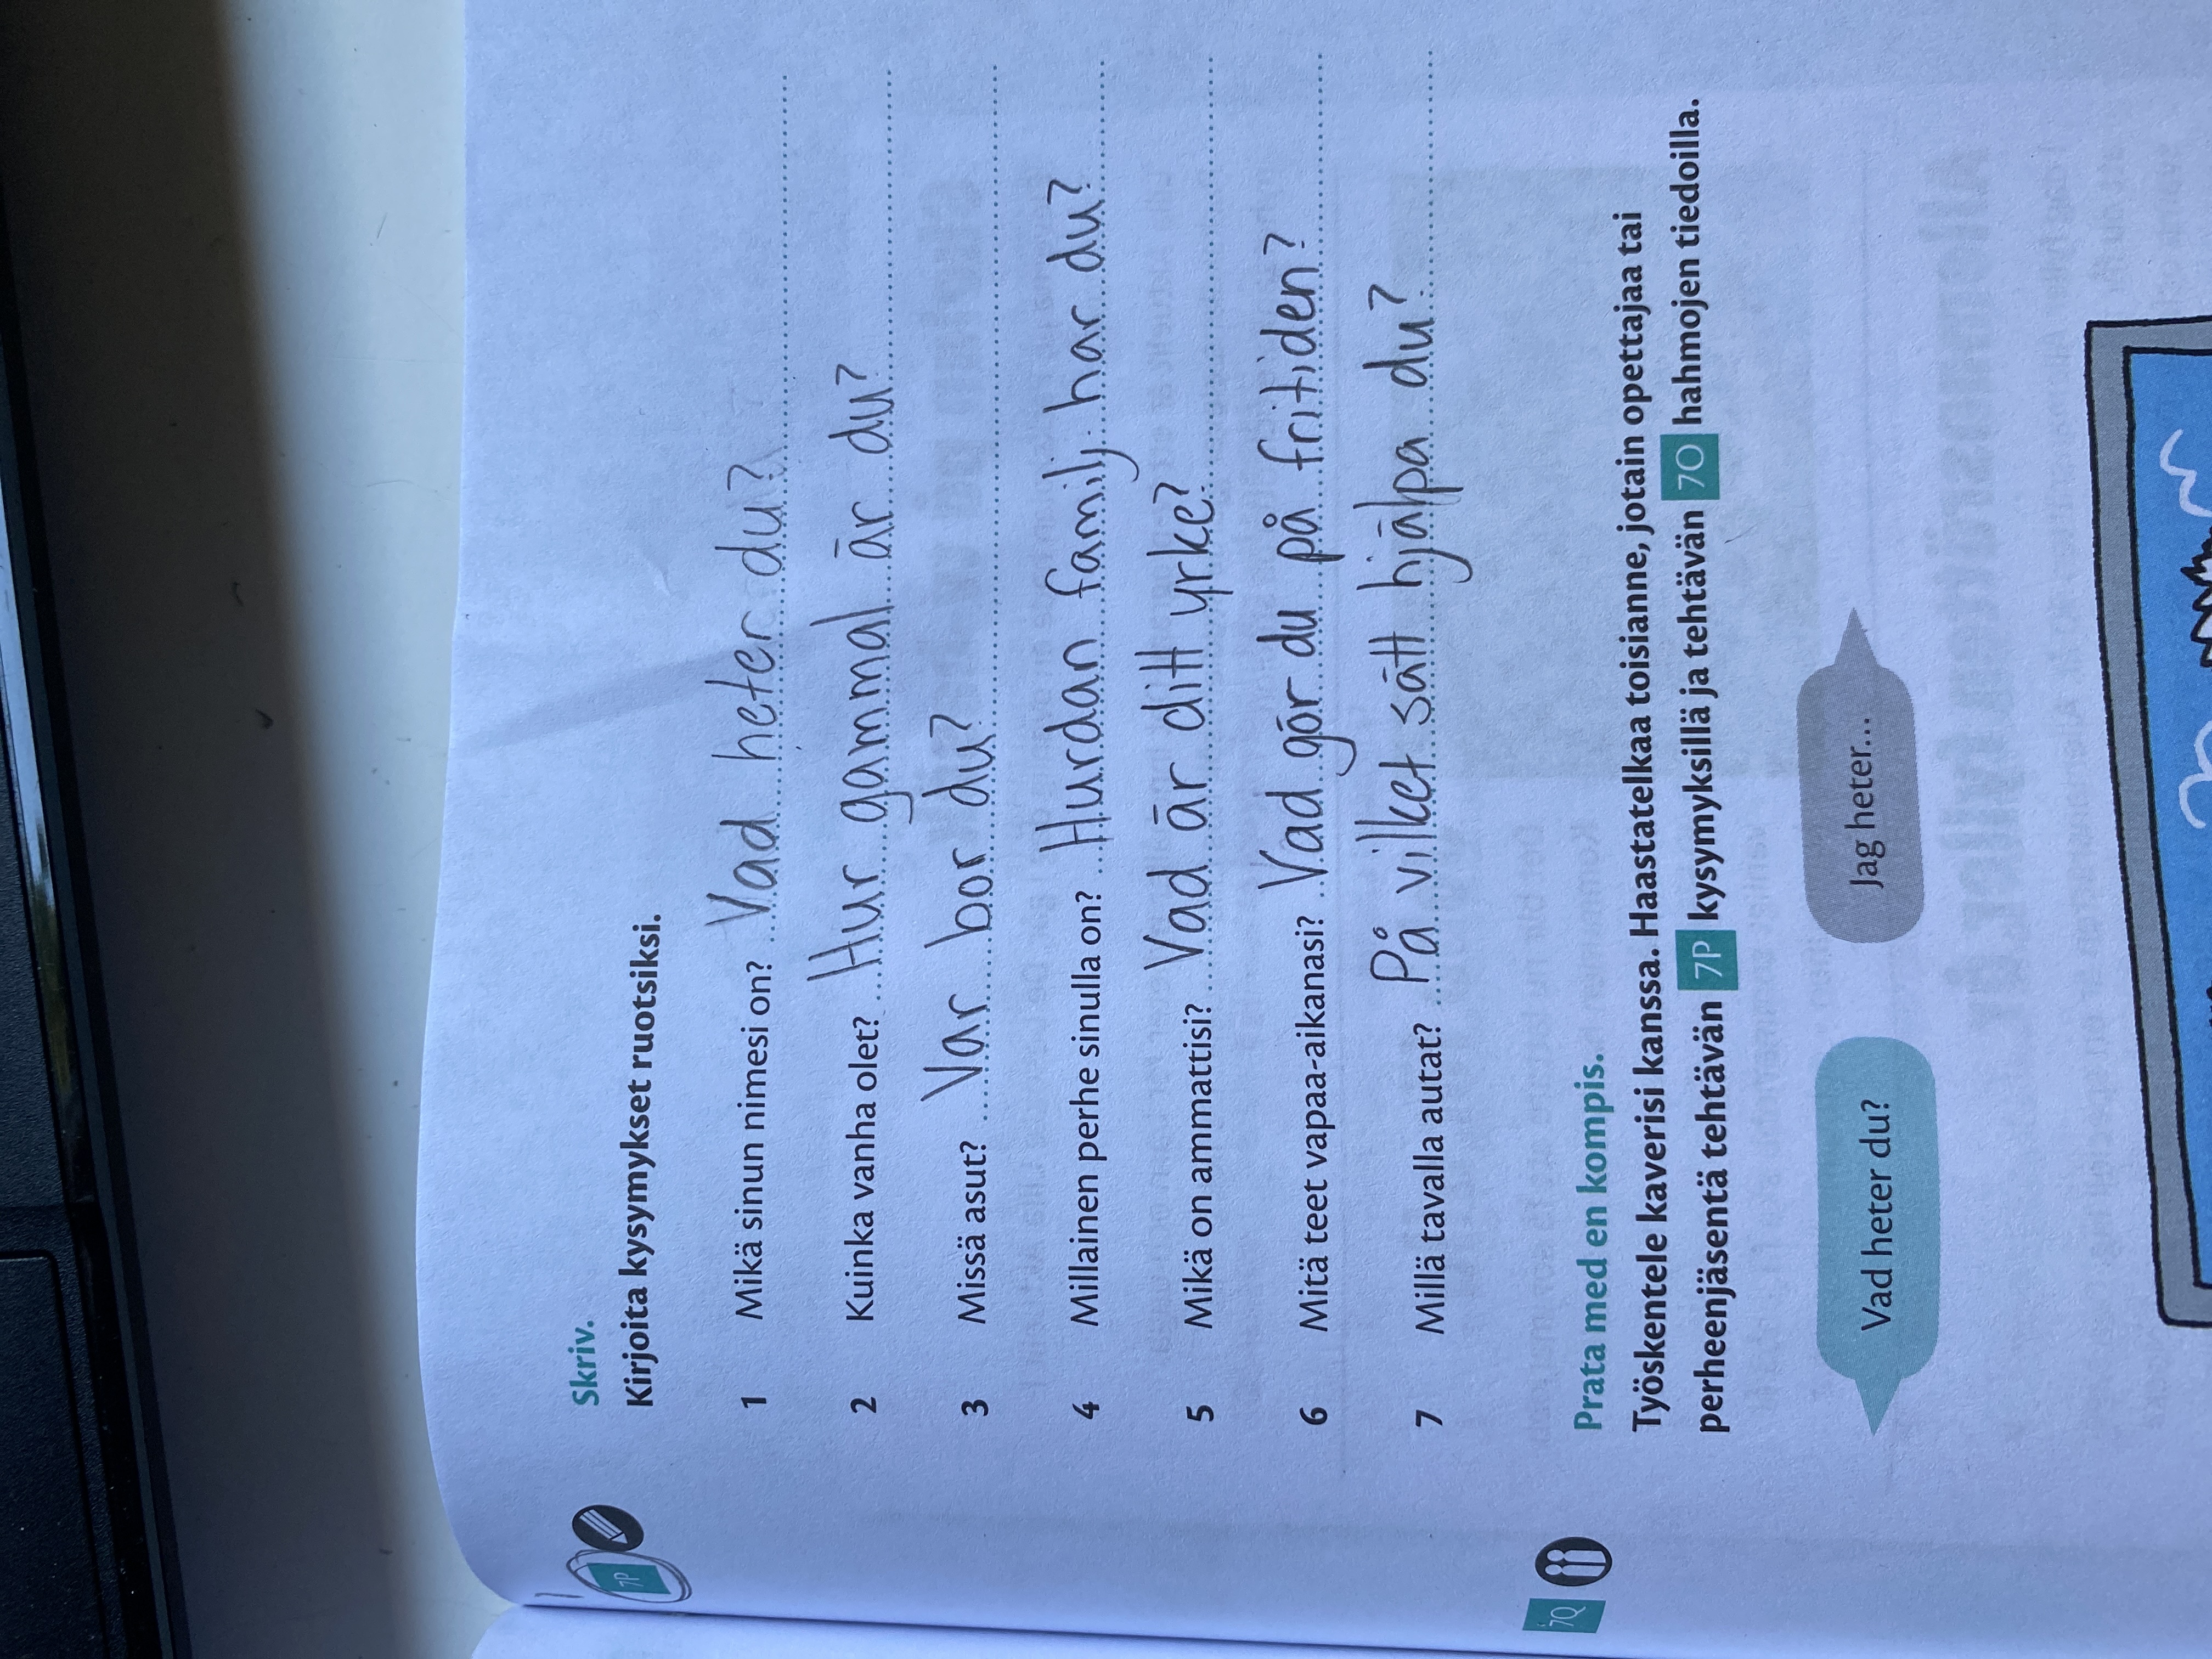 7P
Skriv.
Kirjoita kysymykset ruotsiksi.
1 Mikä sinun nimesi on? Vad heter du?
2 Kuinka vanha olet? Hur gammal är du?
3 Missä asut? Var bor du?
4 Millainen perhe sinulla on? Hurdan familj har du?
5 Mikä on ammattisi? Vad är ditt yrke?
6 Mitä teet vapaa-aikanasi? Vad gör du på fritiden?
7 Millä tavalla autat? På vilket sätt hjälpa du?
7Q
Prata med en kompis.
Työskentele kaverisi kanssa. Haastatelkaa toisianne, jotain opettajaa tai
perheenjäsentä tehtävän 7P kysymyksillä ja tehtävän 7O hahmojen tiedoilla.
Vad heter du?
Jag heter...